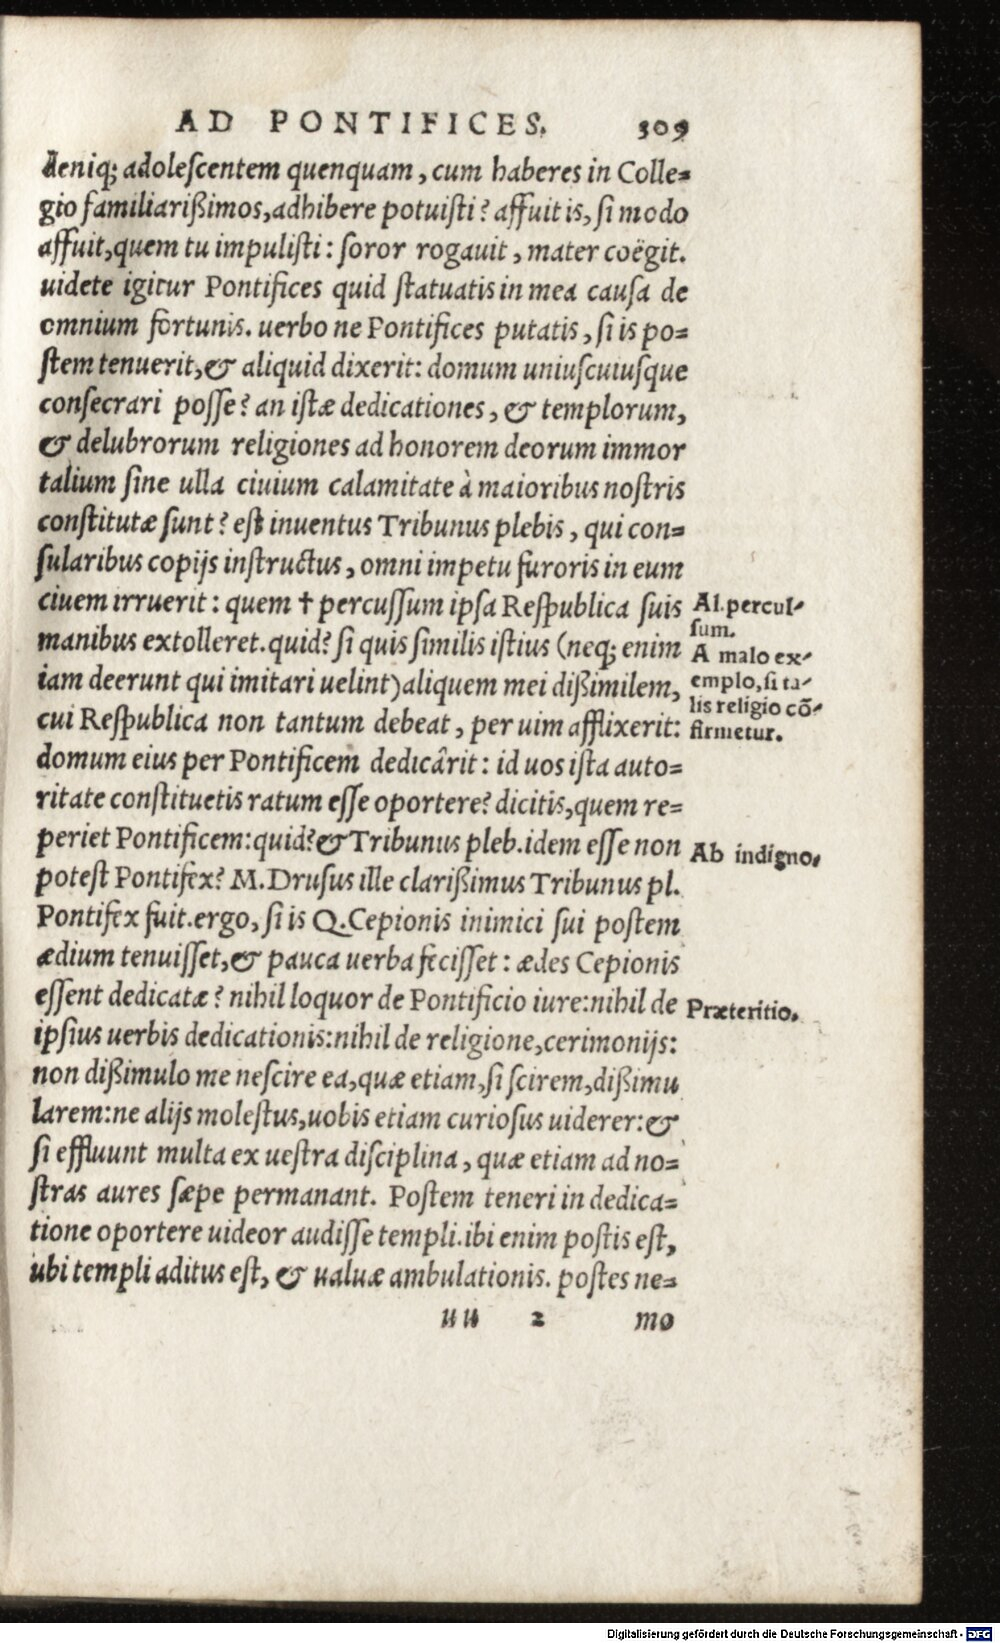 AD PONTIFICES. 309
deniq; adolescentem quenquam, cum haberes in Colle=
gio familiarißimos, adhibere potuisti? affuit is, si modo
affuit, quem tu impulisti: soror rogauit, mater coëgit.
uidete igitur Pontifices quid statuatis in mea causa de
omnium fortunis. uerbo ne Pontifices putatis, si is po=
stem tenuerit, & aliquid dixerit: domum uniuscuiusque
consecrari posse? an istæ dedicationes, & templorum,
& delubrorum religiones ad honorem deorum immor
talium sine ulla ciuium calamitate à maioribus nostris
constitutæ sunt? est inuentus Tribunus plebis, qui con=
sularibus copijs instructus, omni impetu furoris in eum
ciuem irruerit: quem † percussum ipsa Respublica suis
manibus extolleret. quid? si quis similis istius (neq; enim
iam deerunt qui imitari uelint) aliquem mei dißimilem,
cui Respublica non tantum debeat, per uim afflixerit:
domum eius per Pontificem dedicârit: id uos ista auto=
ritate constituetis ratum esse oportere? dicitis, quem re=
periet Pontificem: quid? & Tribunus pleb. idem esse non
potest Pontifex? M. Drusus ille clarißimus Tribunus pl.
Pontifex fuit. ergo, si is Q. Cepionis inimici sui postem
ædium tenuisset, & pauca uerba fecisset: ædes Cepionis
essent dedicatæ? nihil loquor de Pontificio iure: nihil de
ipsius uerbis dedicationis: nihil de religione, cerimonijs:
non dißimulo me nescire ea, quæ etiam, si scirem, dißimu
larem: ne alijs molestus, uobis etiam curiosus uiderer: &
si effluunt multa ex uestra disciplina, quæ etiam ad no=
stras aures sæpe permanant. Postem teneri in dedica=
tione oportere uideor audisse templi. ibi enim postis est,
ubi templi aditus est, & ualuæ ambulationis. postes ne=
uu 2 mo
Al. percul-
sum.
A malo ex-
emplo, si ta-
lis religio cō-
firmetur.
Ab indigno.
Præteritio.
Digitalisierung gefördert durch die Deutsche Forschungsgemeinschaft - DFG